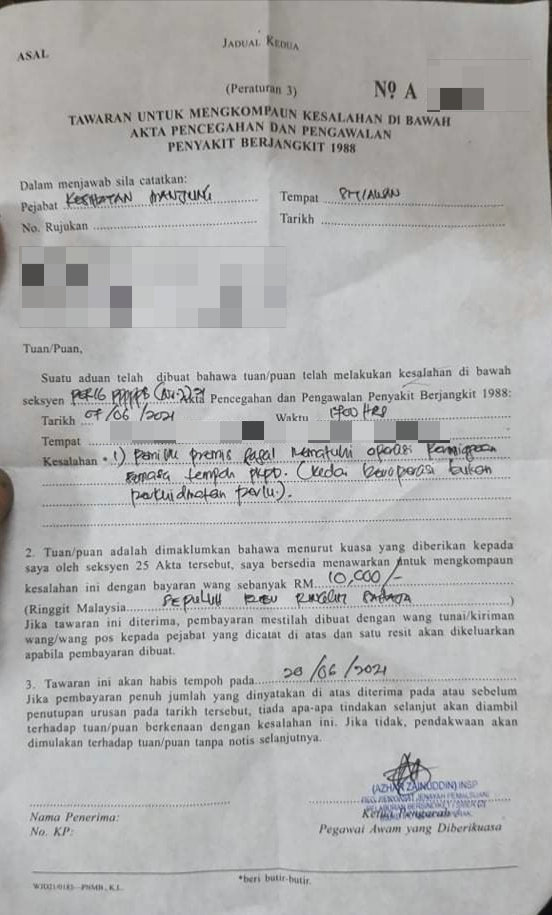 ASAL
JADUAL KEDUA
(Peraturan 3)
Nº A
TAWARAN UNTUK MENGKOMPAUN KESALAHAN DI BAWAH
AKTA PENCEGAHAN DAN PENGAWALAN
PENYAKIT BERJANGKIT 1988
Dalam menjawab sila catatkan:
Pejabat KESIHATAN MANJUNG
Tempat SITIAWAN
No. Rujukan
Tarikh
Tuan/Puan,
Suatu aduan telah dibuat bahawa tuan/puan telah melakukan kesalahan di bawah
seksyen Akta Pencegahan dan Pengawalan Penyakit Berjangkit 1988:
Tarikh 07/06/2021 Waktu HRS
Tempat
Kesalahan * 1) Pemilik premis gagal mematuhi operasi perniagaan
semasa tempoh pkpp. (kedai beroperasi bukan
perkhidmatan perlu).
2. Tuan/puan adalah dimaklumkan bahawa menurut kuasa yang diberikan kepada
saya oleh seksyen 25 Akta tersebut, saya bersedia menawarkan untuk mengkompaun
kesalahan ini dengan bayaran wang sebanyak RM 10,000/-
(Ringgit Malaysia SEPULUH RIBU RINGGIT SAHAJA)
Jika tawaran ini diterima, pembayaran mestilah dibuat dengan wang tunai/kiriman
wang/wang pos kepada pejabat yang dicatat di atas dan satu resit akan dikeluarkan
apabila pembayaran dibuat.
3. Tawaran ini akan habis tempoh pada 20/06/2021
Jika pembayaran penuh jumlah yang dinyatakan di atas diterima pada atau sebelum
penutupan urusan pada tarikh tersebut, tiada apa-apa tindakan selanjut akan diambil
terhadap tuan/puan berkenaan dengan kesalahan ini. Jika tidak, pendakwaan akan
dimulakan terhadap tuan/puan tanpa notis selanjutnya.
(AZHAR ZAINUDDIN) INSP
Nama Penerima:
No. KP:
Ketua Pengarah/
Pegawai Awam yang Diberikuasa
*beri butir-butir.
WJD21/0183—PNMB., K.L.